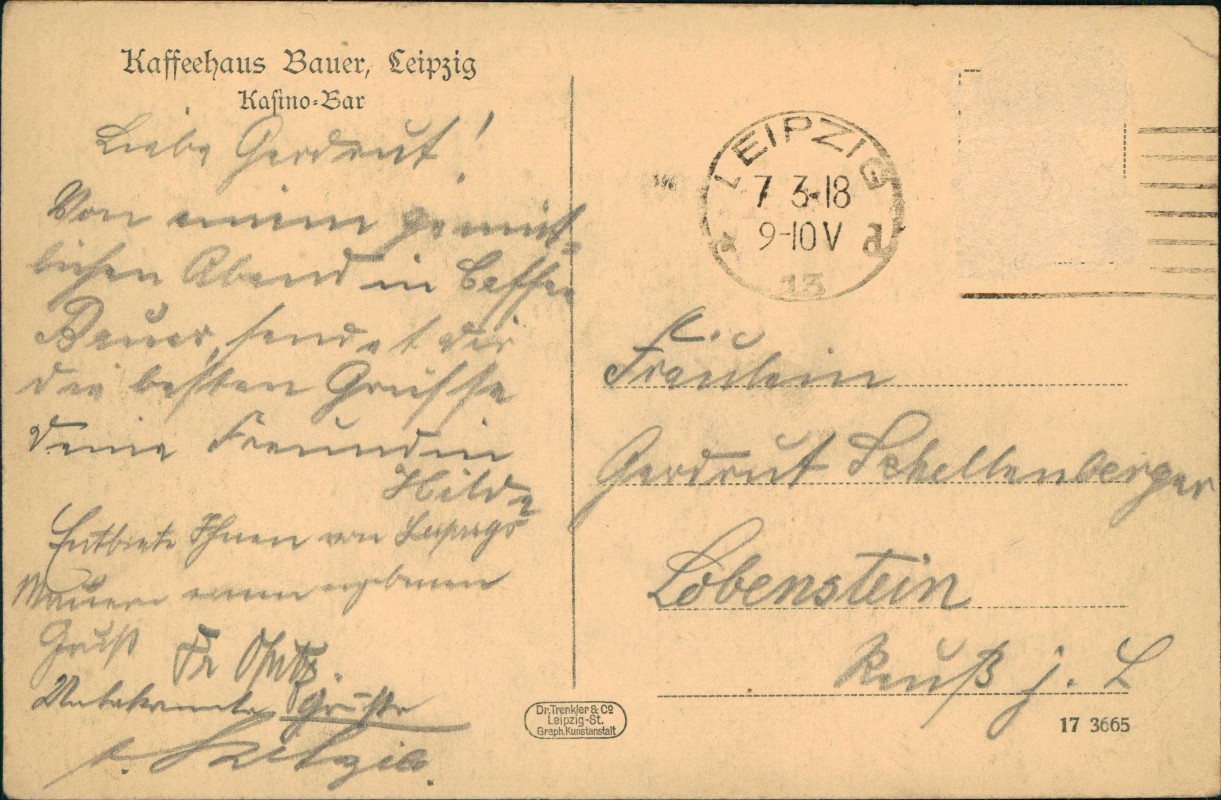 Kaffeehaus Bauer, Leipzig
Kasino-Bar
Liebe Gerdrut!
Von einem gemüt-
lichen Abend in Caffee
Bauer, sendet dir
die besten Grüsse
Deine Freundin
Hilde
Entbiete Ihnen von Leipzigs
Mauern einen ergebenen
Gruß
Fr
Unbekannte Grüße
LEIPZIG
7 3.18
9-10 V
* 13 d
Fräulein
Gerdrut Schellenberger
Lobenstein
Reuß j. L
Dr. Trenkler & Co
Leipzig-St.
Graph. Kunstanstalt
17 3665